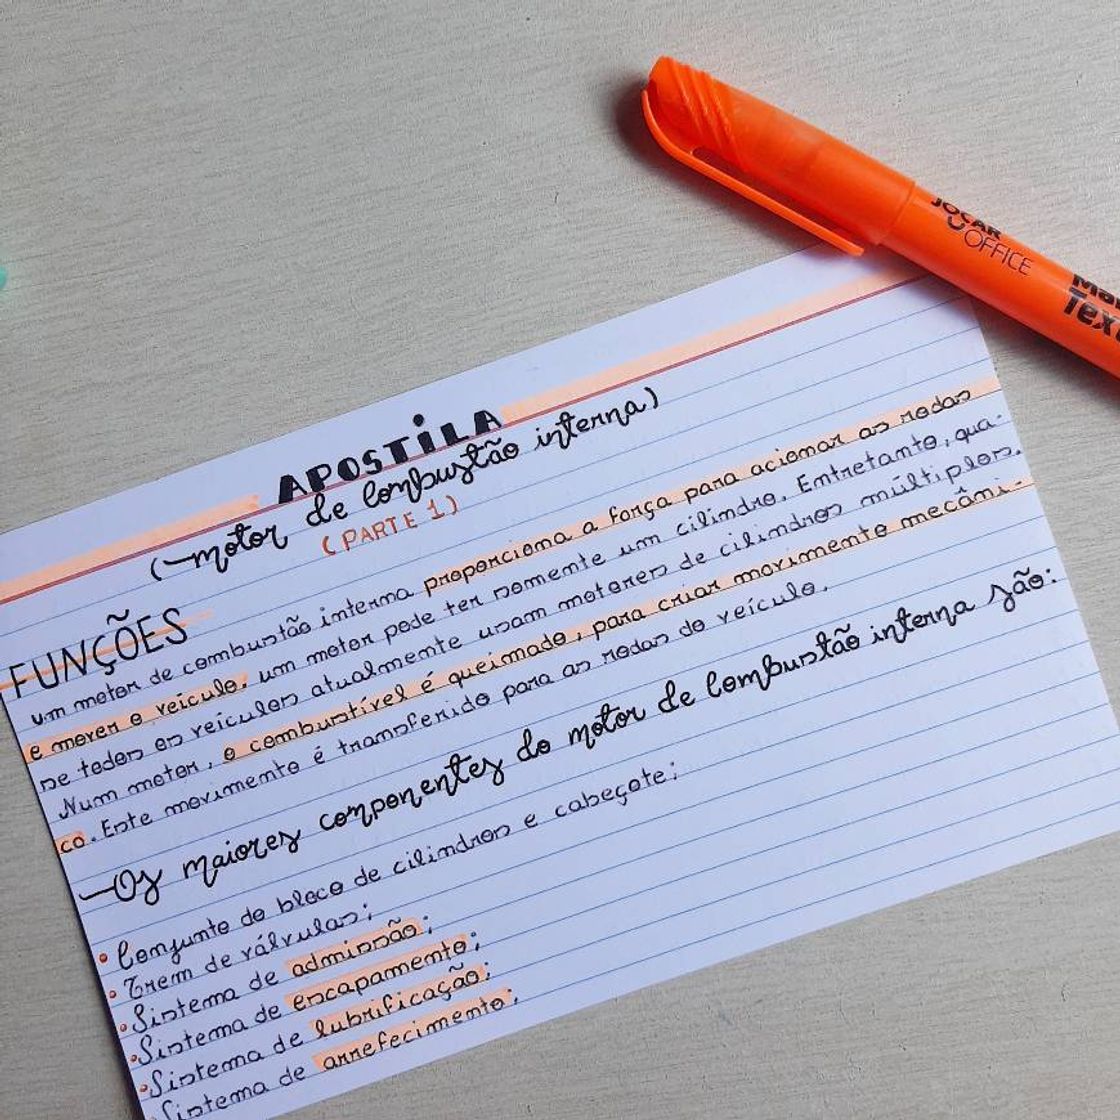 JOCAR
OFFICE
Ma
Tex
APOSTiLA
(motor de combustão interna)
(PARTE 1)
FUNÇÕES
um motor de combustão interna proporciona a força para acionar as rodas
e mover o veículo. um motor pode ter somente um cilindro. Entretanto, qua-
se todos os veículos atualmente usam motores de cilindros múltiplos.
Num motor, o combustível é queimado, para criar movimento mecâni-
co. Este movimento é transferido para as rodas do veículo.
Os maiores componentes do motor de combustão interna são:
• Conjunto do bloco de cilindros e cabeçote;
• Trem de válvulas;
• Sistema de admissão;
• Sistema de escapamento;
• Sistema de lubrificação;
Sistema de arrefecimento;